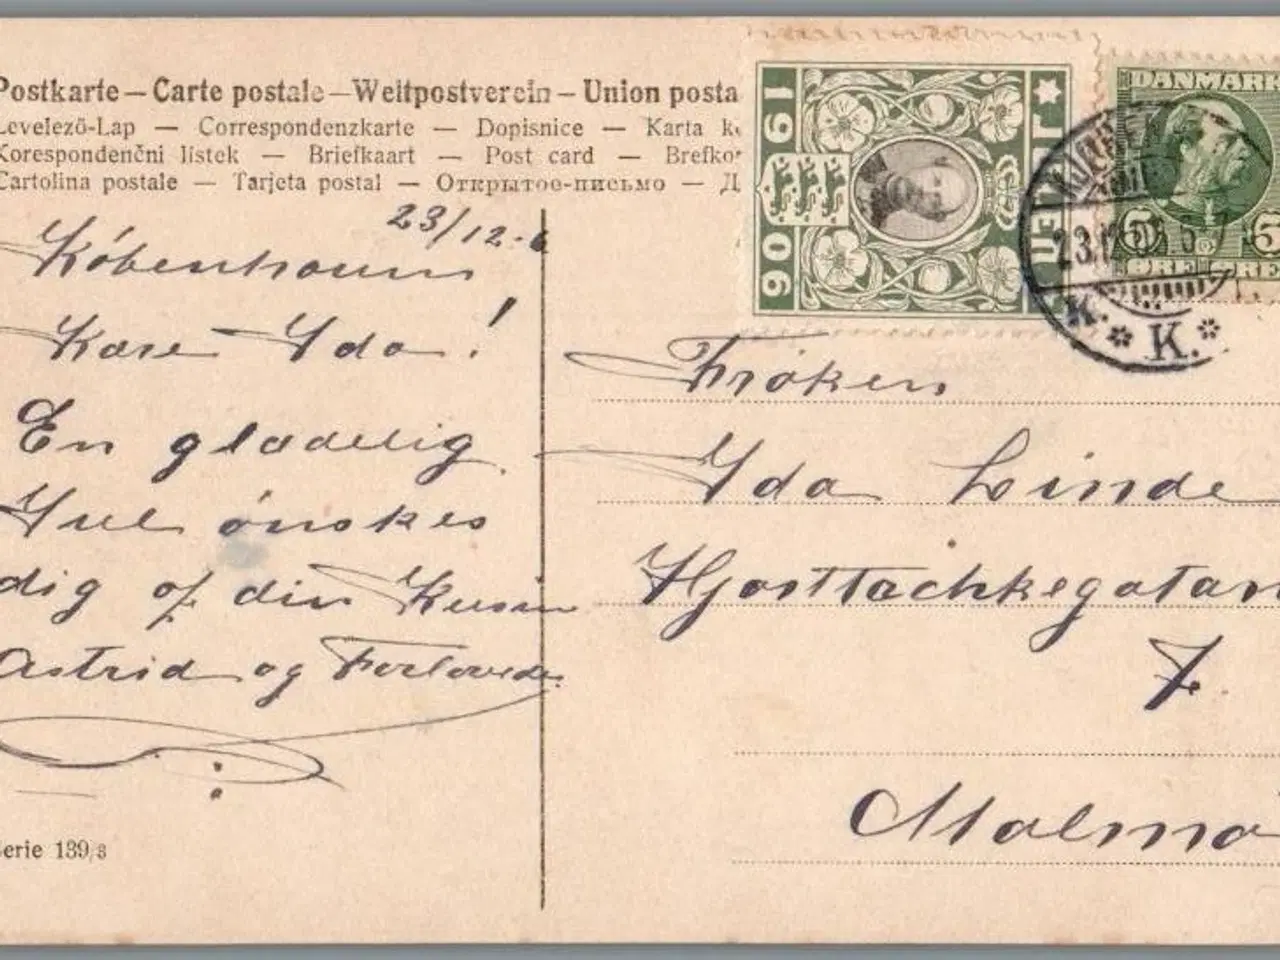 Postkarte — Carte postale — Weltpostverein — Union posta
Levelező-Lap — Correspondenzkarte — Dopisnice — Karta
Korespondenčni listek — Briefkaart — Post card — Brefko
Cartolina postale — Tarjeta postal — Открытое-письмо — Д
23/12-6
Köbenhavn
Kære Ida!
En glædelig
Jul önskes
dig af din Kusine
Astrid og Forlovede
Serie 139/3
19 JULEN 06
DANMARK
5 5
ØRE ØRE
23.12.
K. K.
Fröken
Ida Linde
7
Malmö